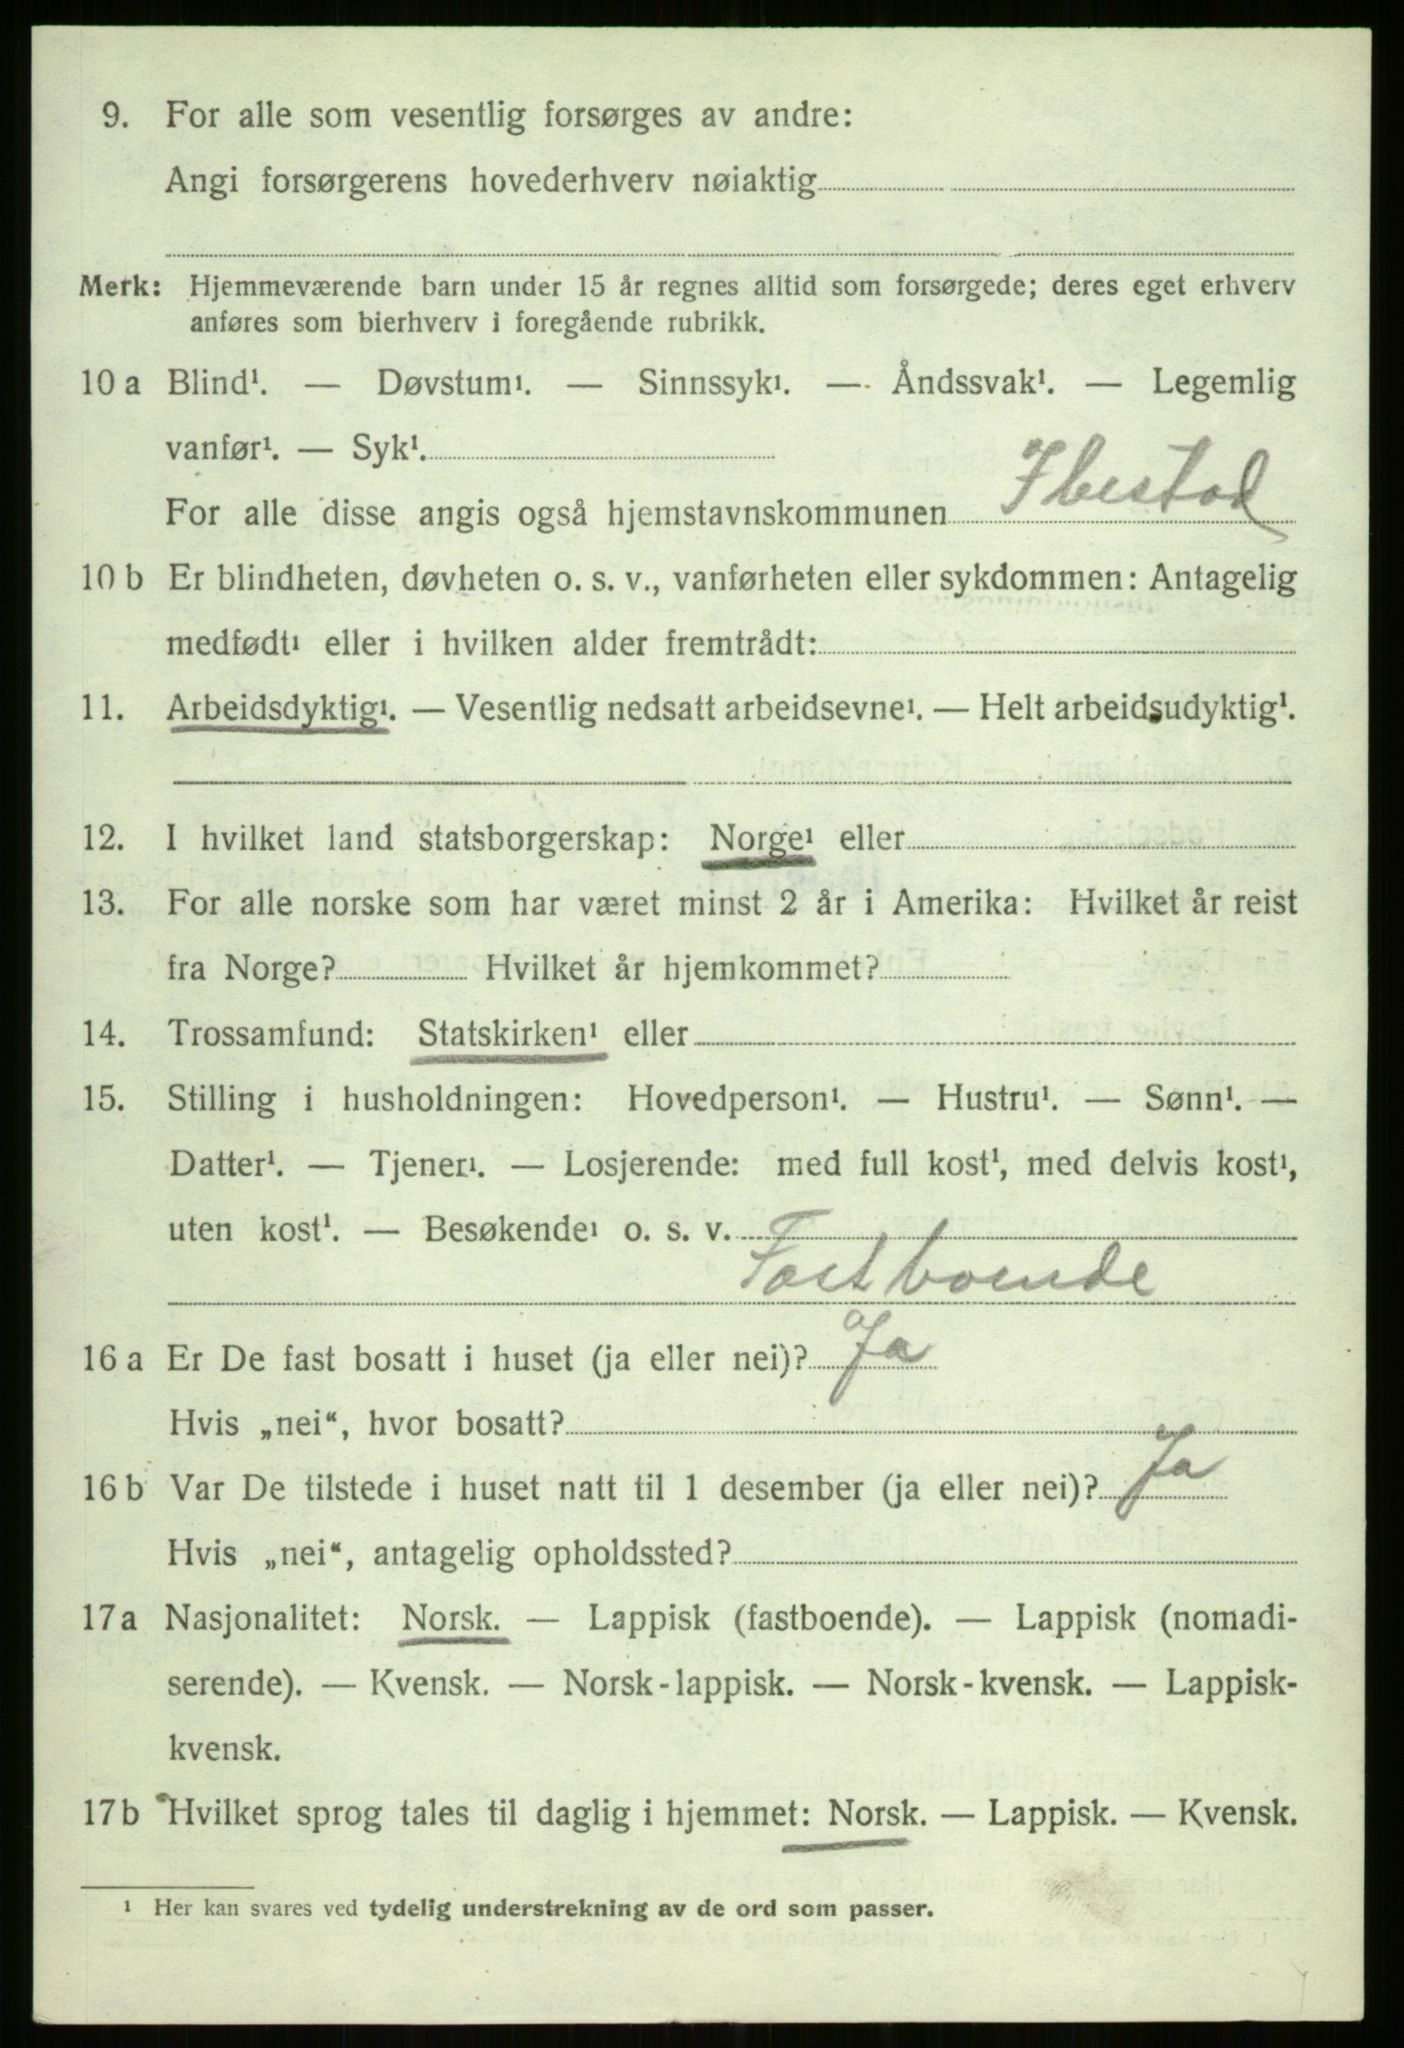 9. For alle som vesentlig forsørges av andre:
Angi forsørgerens hovederhverv nøiaktig
Merk: Hjemmeværende barn under 15 år regnes alltid som forsørgede; deres eget erhverv
anføres som bierhverv i foregående rubrikk.
10 a Blind¹. — Døvstum¹. — Sinnssyk¹. — Åndssvak¹. — Legemlig
vanfør¹. — Syk¹.
For alle disse angis også hjemstavnskommunen Ibestad
10 b Er blindheten, døvheten o. s. v., vanførheten eller sykdommen: Antagelig
medfødt¹ eller i hvilken alder fremtrådt:
11. Arbeidsdyktig¹. — Vesentlig nedsatt arbeidsevne¹. — Helt arbeidsudyktig¹.
12. I hvilket land statsborgerskap: Norge¹ eller
13. For alle norske som har været minst 2 år i Amerika: Hvilket år reist
fra Norge? Hvilket år hjemkommet?
14. Trossamfund: Statskirken¹ eller
15. Stilling i husholdningen: Hovedperson¹. — Hustru¹. — Sønn¹. —
Datter¹. — Tjener¹. — Losjerende: med full kost¹, med delvis kost¹,
uten kost¹. — Besøkende¹ o. s. v.
Fastboende
16 a Er De fast bosatt i huset (ja eller nei)? Ja
Hvis „nei“, hvor bosatt?
16 b Var De tilstede i huset natt til 1 desember (ja eller nei)? Ja
Hvis „nei“, antagelig opholdssted?
17 a Nasjonalitet: Norsk. — Lappisk (fastboende). — Lappisk (nomadi-
serende). — Kvensk. — Norsk-lappisk. — Norsk-kvensk. — Lappisk-
kvensk.
17 b Hvilket sprog tales til daglig i hjemmet: Norsk. — Lappisk. — Kvensk.
¹ Her kan svares ved tydelig understrekning av de ord som passer.